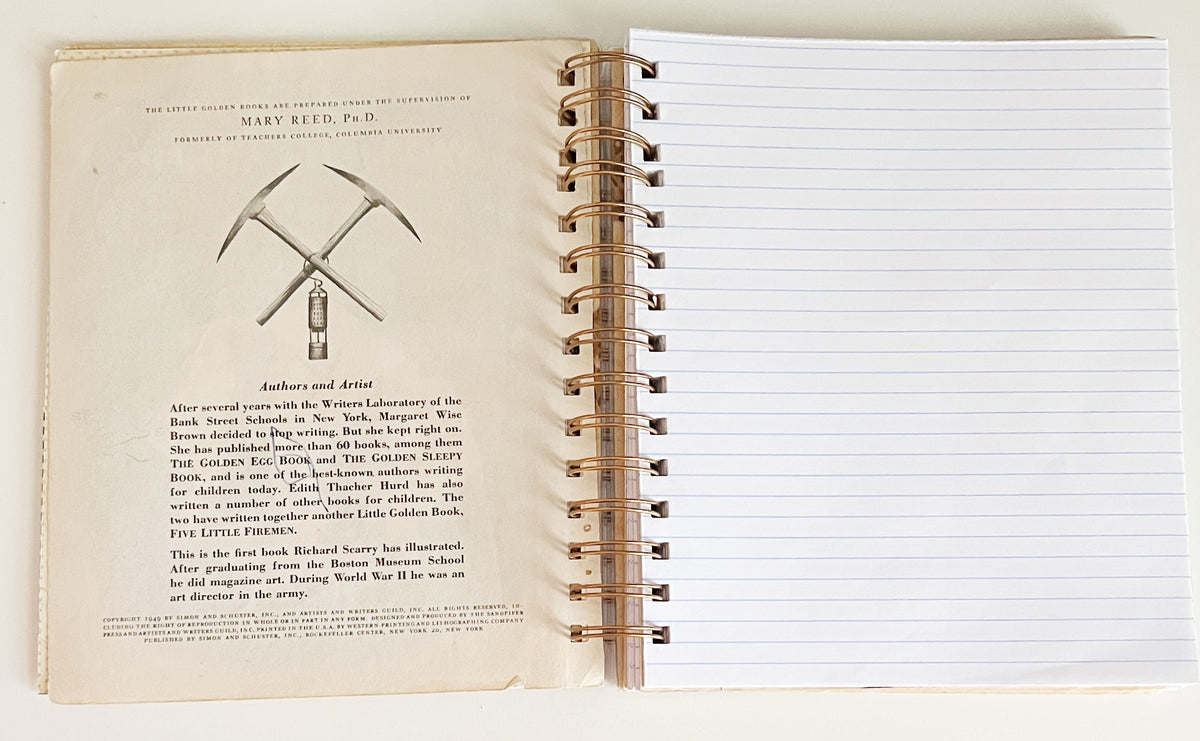 THE LITTLE GOLDEN BOOKS ARE PREPARED UNDER THE SUPERVISION OF
MARY REED, PH.D.
FORMERLY OF TEACHERS COLLEGE, COLUMBIA UNIVERSITY
Authors and Artist
After several years with the Writers Laboratory of the
Bank Street Schools in New York, Margaret Wise
Brown decided to stop writing. But she kept right on.
She has published more than 60 books, among them
THE GOLDEN EGG BOOK and THE GOLDEN SLEEPY
BOOK, and is one of the best-known authors writing
for children today. Edith Thacher Hurd has also
written a number of other books for children. The
two have written together another Little Golden Book,
FIVE LITTLE FIREMEN.
This is the first book Richard Scarry has illustrated.
After graduating from the Boston Museum School
he did magazine art. During World War II he was an
art director in the army.
COPYRIGHT 1949 BY SIMON AND SCHUSTER, INC., AND ARTISTS AND WRITERS GUILD, INC. ALL RIGHTS RESERVED, IN-
CLUDING THE RIGHT OF REPRODUCTION IN WHOLE OR IN PART IN ANY FORM. DESIGNED AND PRODUCED BY THE SANDPIPER
PRESS AND ARTISTS AND WRITERS GUILD, INC. PRINTED IN THE U.S.A. BY WESTERN PRINTING AND LITHOGRAPHING COMPANY
PUBLISHED BY SIMON AND SCHUSTER, INC., ROCKEFELLER CENTER, NEW YORK 20, NEW YORK